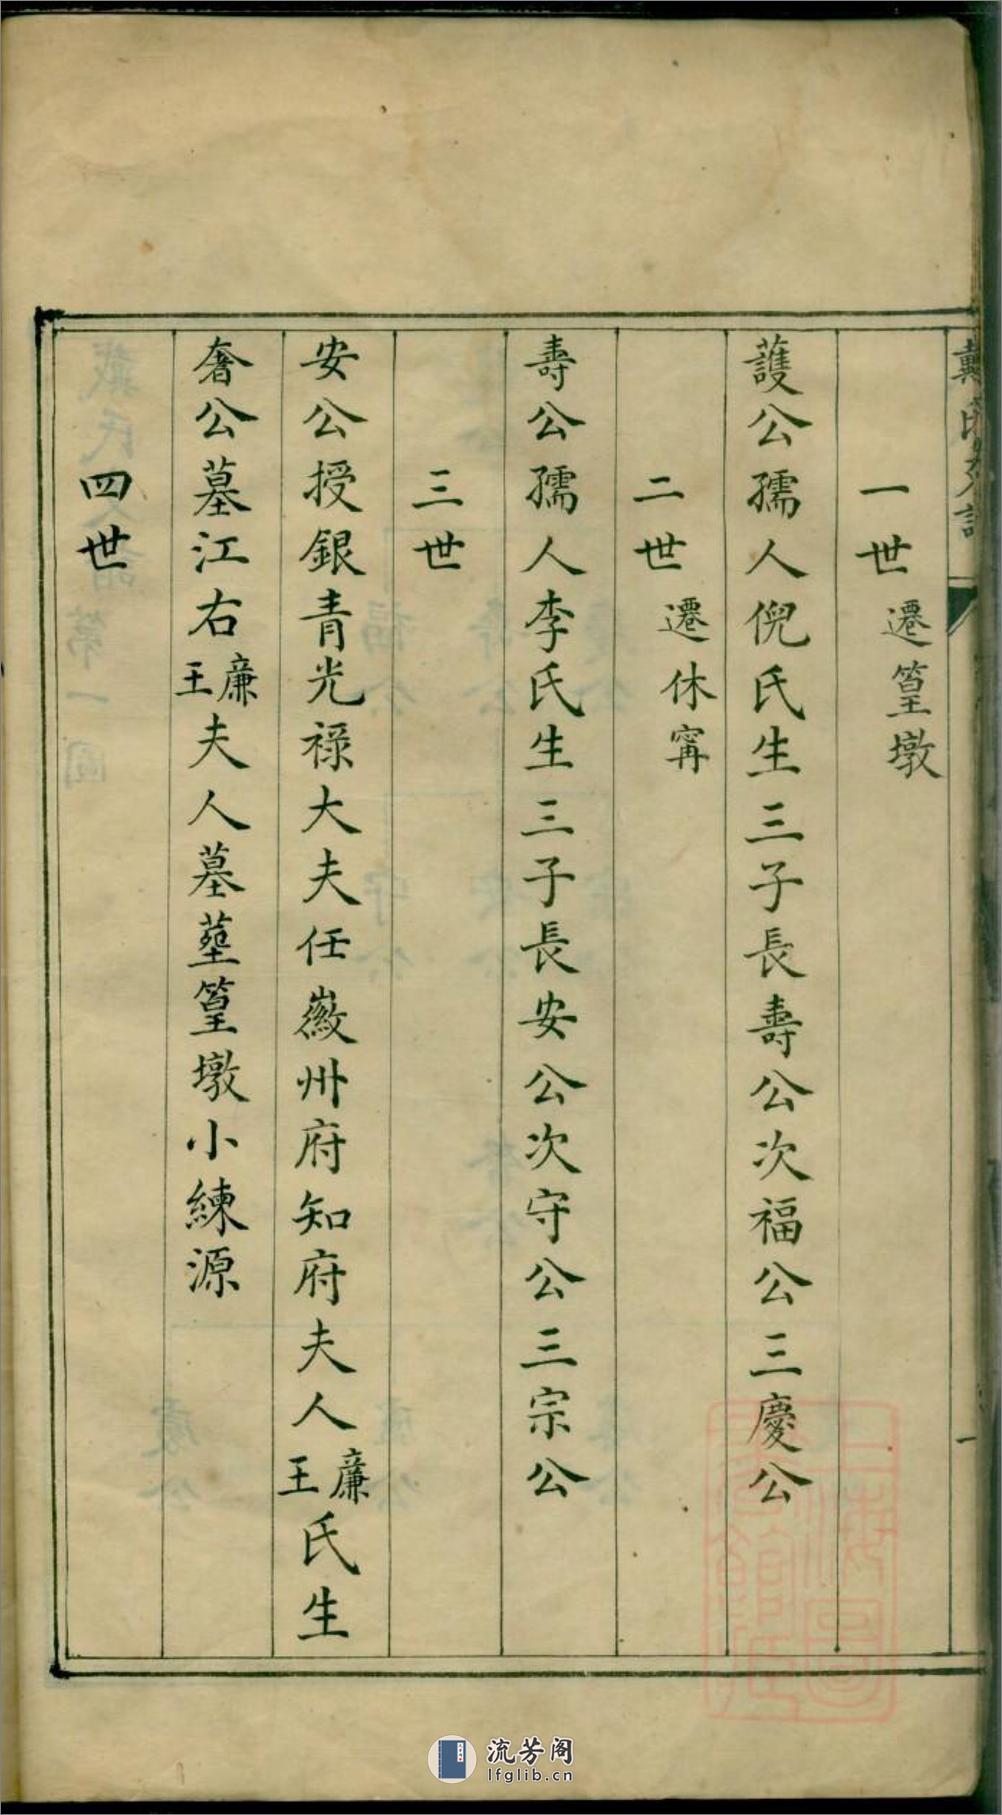 一世 遷篁墩
護公孺人倪氏生三子長壽公次福公三慶公
二世 遷休寗
壽公孺人李氏生三子長安公次守公三宗公
三世
安公授銀青光禄大夫任徽州府知府夫人廉王氏生
奢公墓江右廉王夫人墓塟篁墩小練源
四世
一
流芳阁
lfglib.cn